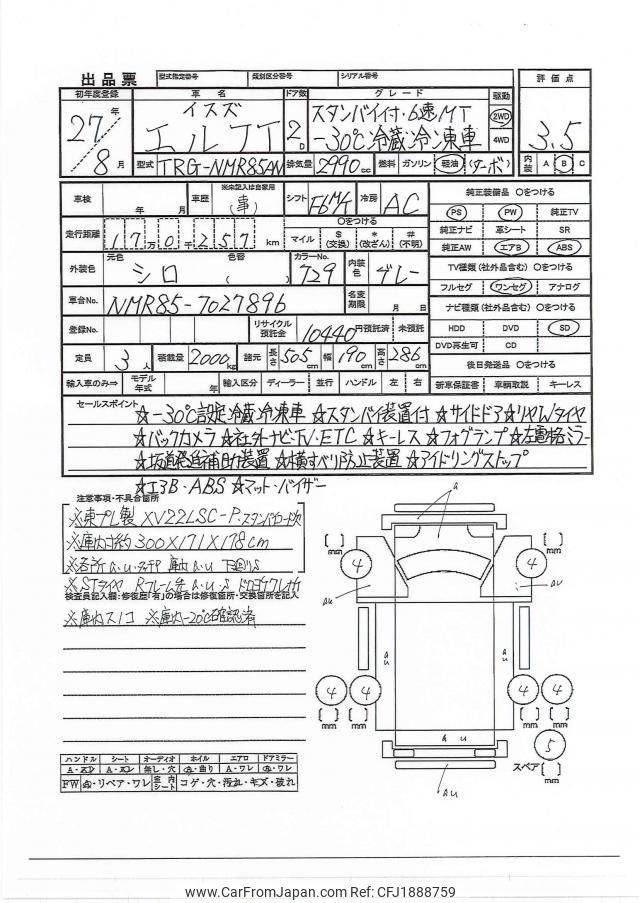 出品票 型式指定番号 類別区分番号 シリアル番号
初年度登録 車名 ドア数 グレード 駆動 評価点
27年 イスズ エルフT 2D スタンバイ付・6速MT 2WD 3.5
/8月 -30℃冷蔵冷凍車 4WD
型式 TRG-NMR85AN 排気量 2990cc 燃料 ガソリン 軽油 (ターボ) 内装 A B C
車検 年 月 車歴 ※未記入は自家用 (事) シフト F6M/T 冷房 AC 純正装備品 ○をつける
○をつける PS PW 純正TV
走行距離 17万0千257km マイル $(交換) *(改ざん) #(不明) 純正ナビ 革シート SR
純正AW エアB ABS
外装色 元色 シロ 色替 ( ) カラーNo. 729 内装色 グレー TV種類(社外品含む) ○をつける
フルセグ ワンセグ アナログ
車台No. NMR85-7027896 名変期限 月 日 ナビ種類(社外品含む) ○をつける
登録No. リサイクル預託金 10440円預託済 未預託 HDD DVD SD
DVD再生可 CD
定員 3人 積載量 2000kg 諸元 長さ505cm 幅190cm 高さ286cm 後日発送品 ○をつける
輸入車のみ⇒ モデル年式 年 輸入区分 ディーラー 並行 ハンドル 左 右 新車保証書 車輌取説 キーレス
セールスポイント ☆-30℃設定冷蔵冷凍車 ☆スタンバイ装置付 ☆サイドドア☆リヤWタイヤ
☆バックカメラ ☆社外ナビ・TV・ETC ☆キーレス ☆フォグランプ ☆左電格ミラー
☆坂道発進補助装置 ☆横すべり防止装置 ☆アイドリングストップ
☆エアB・ABS ☆マット・バイザー
注意事項・不具合箇所
※東プレ製 XV22LSC-P・スタンバイコード欠
※庫内寸約300X171X178cm
※各所a.u.ステ跡 庫内a.u 下廻りS
※STタイヤ Rフレーム弁a・u・S
検査員記入欄:修復歴「有」の場合は修復箇所・交換箇所を記入
※庫内スノコ ※庫内-20℃確認済
a
[ ]mm 4 4 [ ]mm
au au
au au
4 4 4 4
[ ]mm [ ]mm [ ]mm [ ]mm
a u 5
au スペア [ ]mm
ハンドル シート オーディオ ホイル エアロ ドアミラー
A・スレ A・スレ 無し・穴 A・曲り A・ワレ A・ワレ
FW A・リペア・ワレ 室内シート コゲ・穴・汚れ・キズ・破れ
www.CarFromJapan.com Ref: CFJ1888759